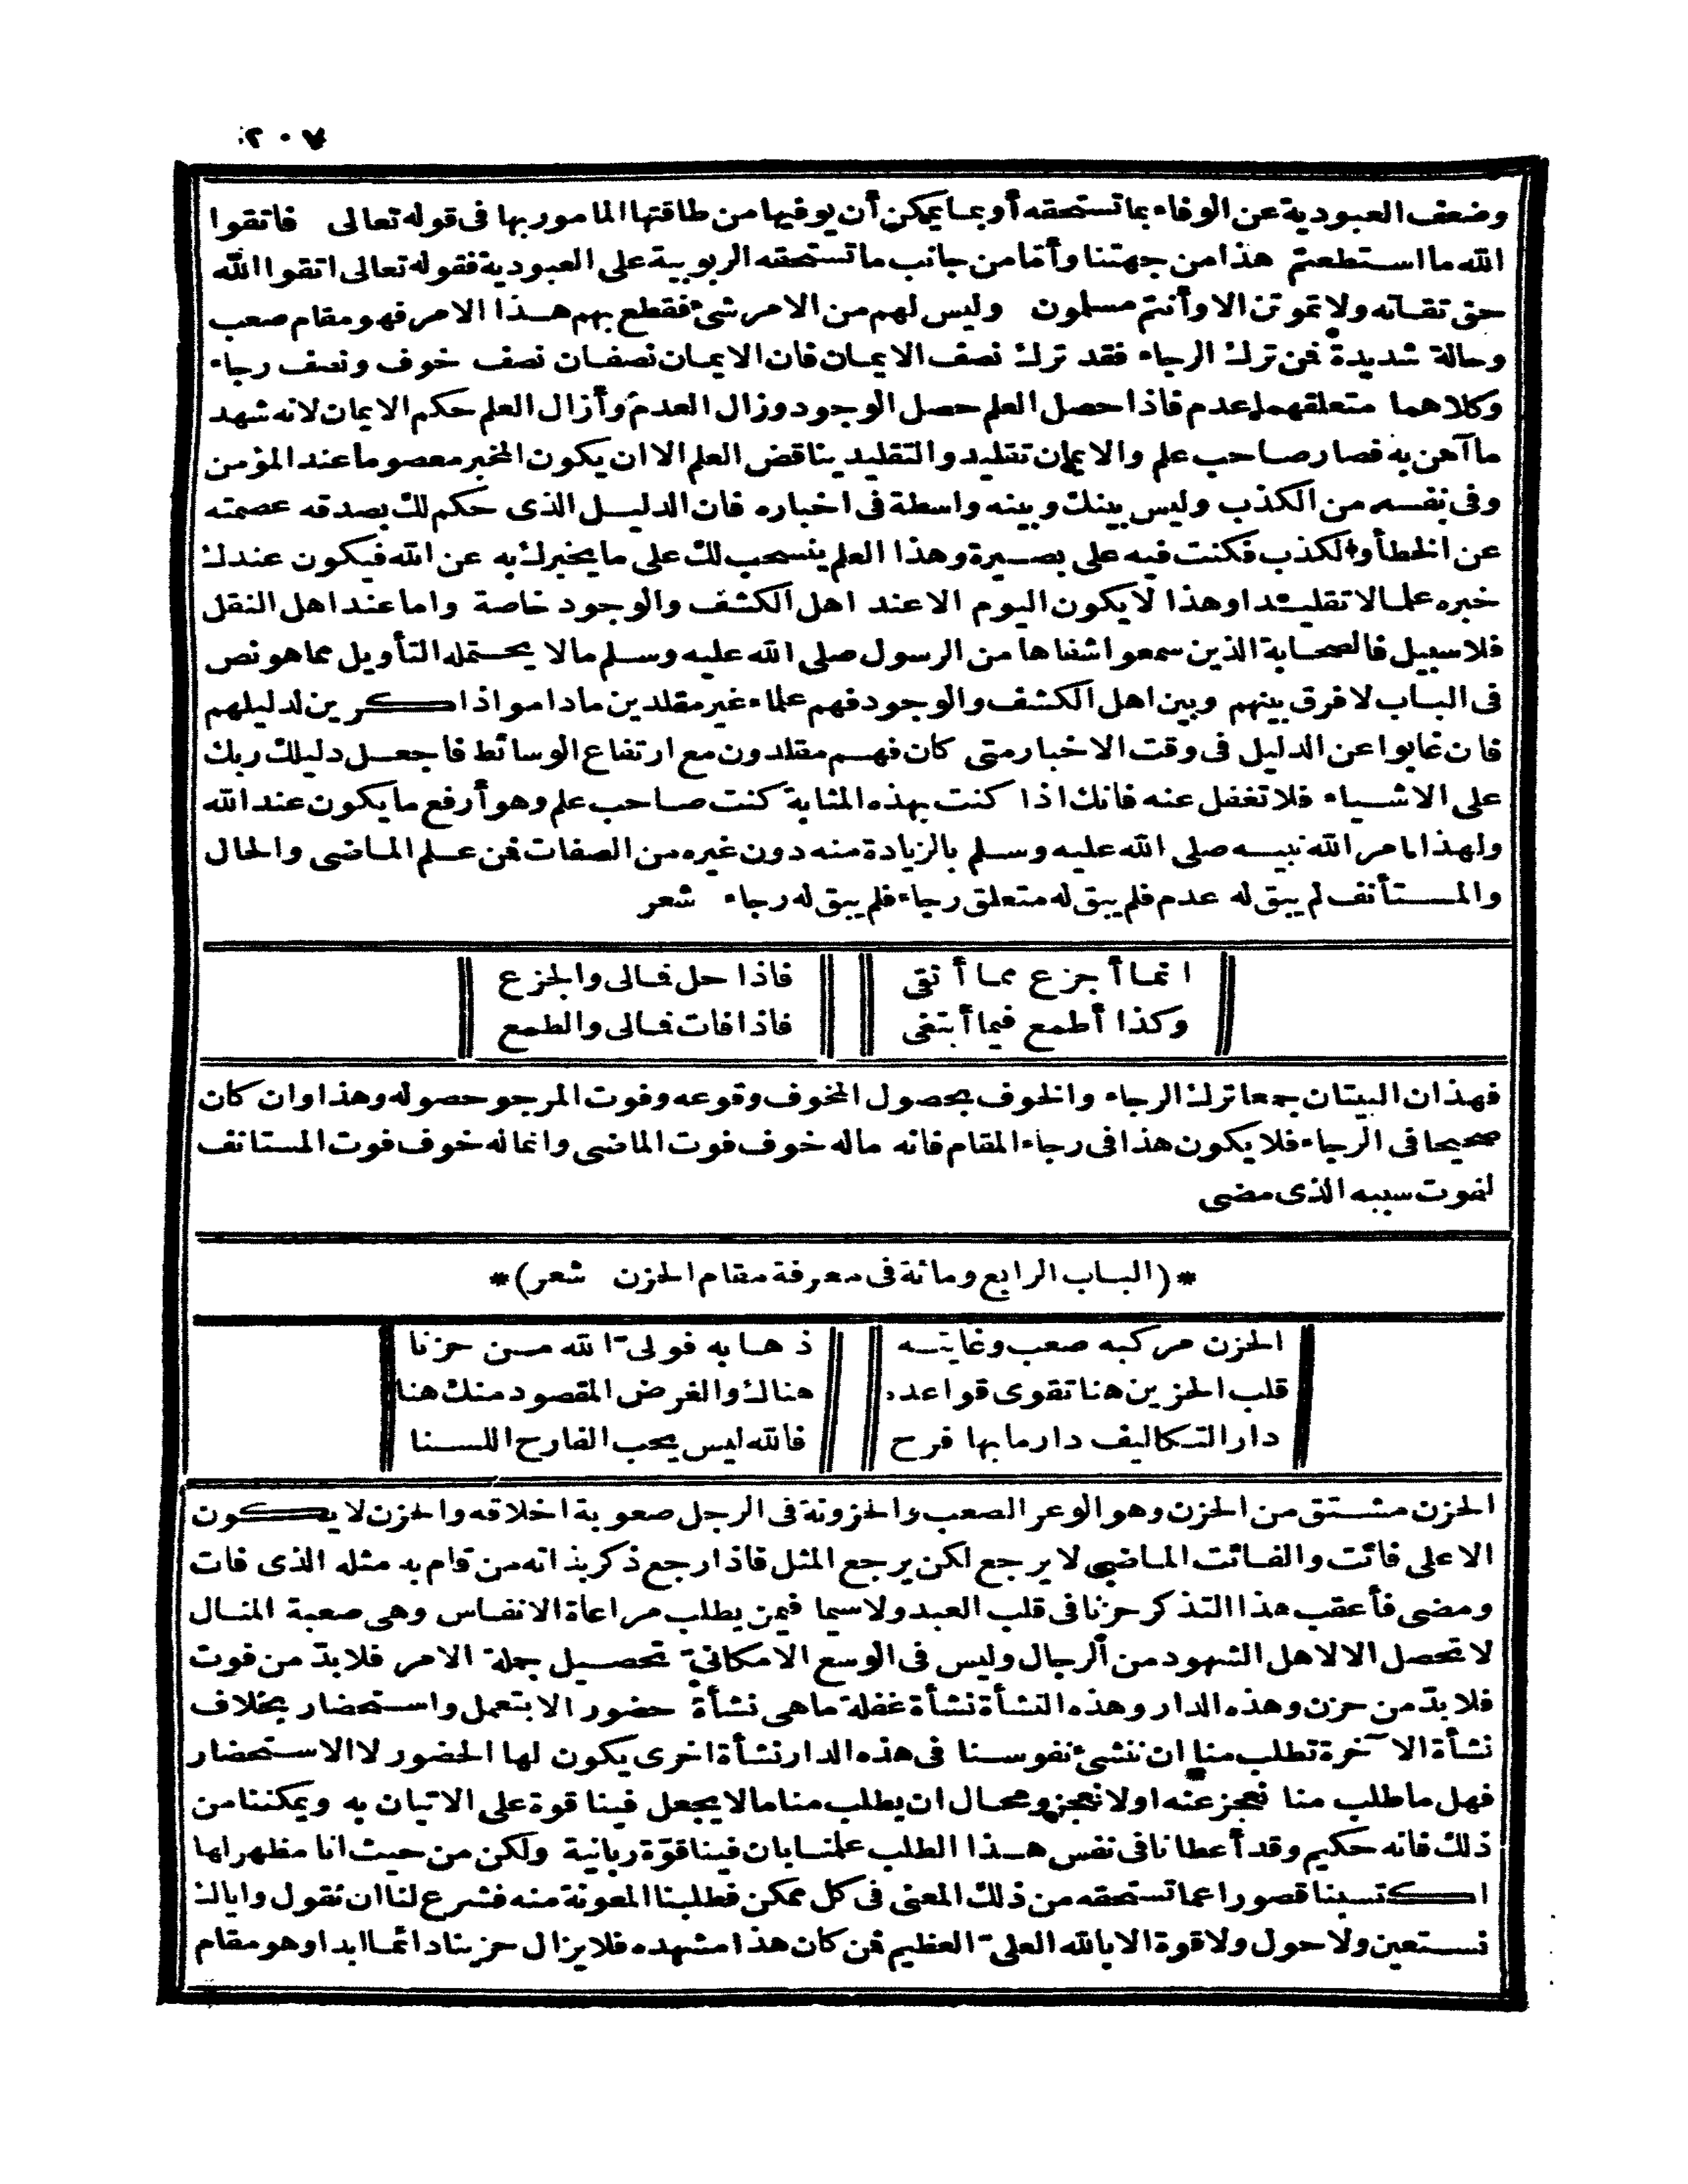 ٢٠٧
وضعف العبودية عن الوفاء بما تستحقه أو بما يمكن أن يوفيها من طاقتها المامور بها فى قوله تعالى فاتقوا
الله ما استطعتم هذا من جهتنا وأمّا من جانب ما تستحقه الربوبية على العبودية فقوله تعالى اتقوا الله
حق تقاته ولا تموتن الا وأنتم مسلمون وليس لهم من الامر شئ فقطع بهم هذا الامر فهو مقام صعب
وحالة شديدة فمن ترك الرجاء فقد ترك نصف الايمان فان الايمان نصفان نصف خوف ونصف رجاء
وكلاهما متعلقهما عدم فاذا حصل العلم حصل الوجود وزال العدم وأزال العلم حكم الايمان لانه شهد
ما آمن به فصار صاحب علم والايمان تقليد والتقليد يناقض العلم الا ان يكون المخبر معصوما عند المؤمن
وفى نفسه من الكذب وليس بينك وبينه واسطة فى اخباره فان الدليل الذى حكم لك بصدقه عصمته
عن الخطأ والكذب فكنت فيه على بصيرة وهذا العلم ينسحب لك على ما يخبرك به عن الله فيكون عندك
خبره علما لا تقليدا وهذا لا يكون اليوم الا عند اهل الكشف والوجود خاصة واما عند اهل النقل
فلا سبيل فالصحابة الذين سمعوا شفاها من الرسول صلى الله عليه وسلم مالا يحتمله التأويل مما هو نص
فى الباب لا فرق بينهم وبين اهل الكشف والوجود فهم علماء غير مقلدين ما داموا ذاكرين لدليلهم
فان غابوا عن الدليل فى وقت الاخبار متى كان فهم مقلدون مع ارتفاع الوسائط فاجعل دليلك ربك
على الاشياء فلا تغفل عنه فانك اذا كنت بهذه المثابة كنت صاحب علم وهو أرفع ما يكون عند الله
ولهذا امر الله نبيه صلى الله عليه وسلم بالزيادة منه دون غيره من الصفات فمن علم الماضى والحال
والمستأنف لم يبق له عدم فلم يبق له متعلق رجاء فلم يبق له رجاء شعر
انما أجزع مما أتقى فاذا حل فمالى والجزع
وكذا أطمع فيما أبتغى فاذا فات فمالى والطمع
فهذان البيتان جمعا ترك الرجاء والخوف بحصول المخوف وقوعه وفوت المرجو حصوله وهذا وان كان
صحيحا فى الرجاء فلا يكون هذا فى رجاء المقام فانه ماله خوف فوت الماضى وانما له خوف فوت المستانف
لفوت سببه الذى مضى
*(الباب الرابع ومائة فى معرفة مقام الحزن شعر)*
الحزن مركبه صعب وغايته ذهابه فولىّ الله من حزنا
قلب الحزين هنا تقوى قواعده هناك والغرض المقصود منك هنا
دار التكاليف دار ما بها فرح فالله ليس يحب الفارح اللسنا
الحزن مشتق من الحزن وهو الوعر الصعب والحزونة فى الرجل صعوبة اخلاقه والحزن لا يكون
الا على فائت والفائت الماضى لا يرجع لكن يرجع المثل فاذا رجع ذكر بذاته من قام به مثله الذى فات
ومضى فأعقب هذا التذكر حزنا فى قلب العبد ولا سيما فيمن يطلب مراعاة الانفاس وهى صعبة المنال
لا تحصل الا لاهل الشهود من الرجال وليس فى الوسع الامكانىّ تحصيل جملة الامر فلا بدّ من فوت
فلا بدّ من حزن وهذه الدار وهذه النشأة نشأة غفلة ما هى نشأة حضور الا بتعمل واستحضار بخلاف
نشأة الآخرة تطلب منا ان ننشئ نفوسنا فى هذه الدار نشأة اخرى يكون لها الحضور لا الاستحضار
فهل ما طلب منا نعجز عنه اولا نعجز ومحال ان يطلب منا مالا يجعل فينا قوة على الاتيان به ويمكننا من
ذلك فانه حكيم وقد أعطانا فى نفس هذا الطلب علمنا بان فينا قوّة ربانية ولكن من حيث انا مظهر لها
اكتسبنا قصورا عما تستحقه من ذلك المعنى فى كل ممكن فطلبنا المعونة منه فشرع لنا ان نقول واياك
نستعين ولا حول ولا قوة الا بالله العلىّ العظيم فمن كان هذا مشهده فلا يزال حزينا دائما ابدا وهو مقام